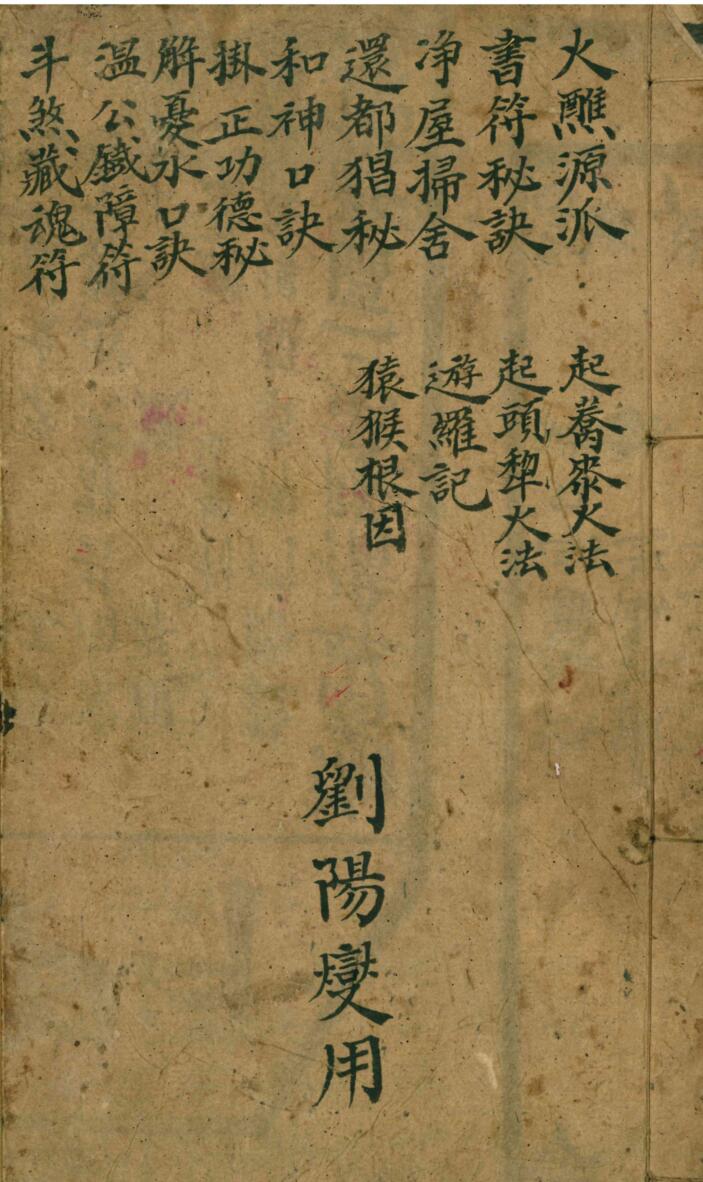 火醮源派
書符秘訣
净屋掃舍
還都猖秘
和神口訣
掛正功德秘
解憂水口訣
溫公鍼障符
斗煞藏魂符
起蕎麥火法
起頭犂火法
遊羅記
猿猴根因
劉陽燮用